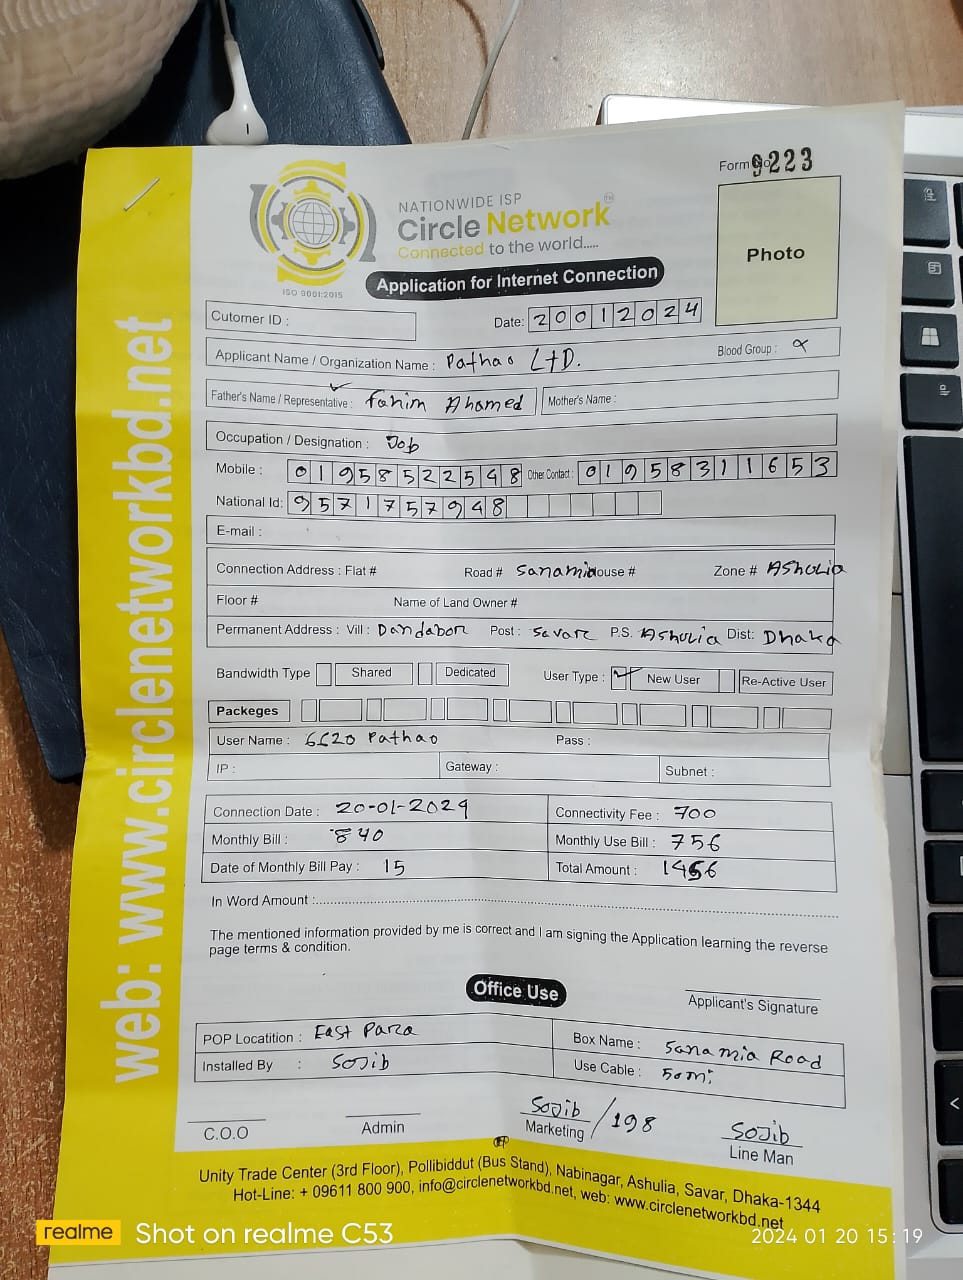 Form No 9223
NATIONWIDE ISP
Circle Network TM
Connected to the world.....
ISO 9001:2015
Application for Internet Connection
Photo
Cutomer ID :
Date: 20012024
Applicant Name / Organization Name : Pathao LtD. Blood Group :
Father's Name / Representative : Fahim Ahamed Mother's Name :
Occupation / Designation : Job
Mobile : 01958522548 Other Contact : 01958311653
National Id: 9571757948
E-mail :
Connection Address : Flat # Road # Sanamia House # Zone # AShulia
Floor # Name of Land Owner #
Permanent Address : Vill : Dandabor Post : Savar P.S. AShulia Dist: Dhaka
Bandwidth Type Shared Dedicated User Type : ✓ New User Re-Active User
Packeges
User Name : Pathao Pass :
IP : Gateway : Subnet :
Connection Date : 20-01-2024 Connectivity Fee : 700
Monthly Bill : 840 Monthly Use Bill : 756
Date of Monthly Bill Pay : 15 Total Amount : 1456
In Word Amount :
The mentioned information provided by me is correct and I am signing the Application learning the reverse
page terms & condition.
Applicant's Signature
Office Use
POP Locatition : East Para Box Name : Sanamia Road
Installed By : SoJib Use Cable : 50mi
SoJib /198 SoJib
C.O.O Admin Marketing Line Man
Unity Trade Center (3rd Floor), Pollibiddut (Bus Stand), Nabinagar, Ashulia, Savar, Dhaka-1344
Hot-Line: + 09611 800 900, info@circlenetworkbd.net, web: www.circlenetworkbd.net
web: www.circlenetworkbd.net
realme Shot on realme C53
2024 01 20 15:19